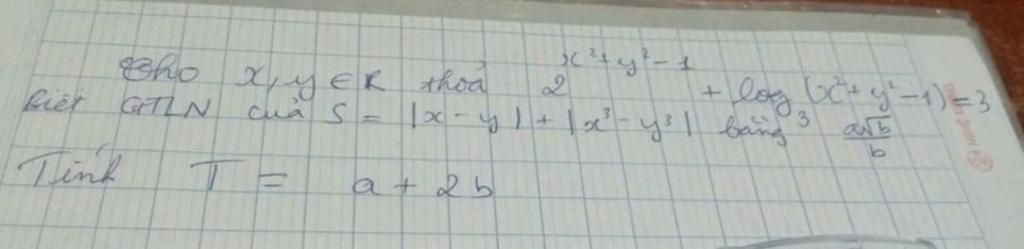 Cho x, y ∈ R thoả 2^{x²+y²-1} + log₃(x²+y²-1) = 3
Biết GTLN của S = |x-y| + |x³-y³| bằng \frac{a\sqrt{b}}{b}
Tính T = a + 2b